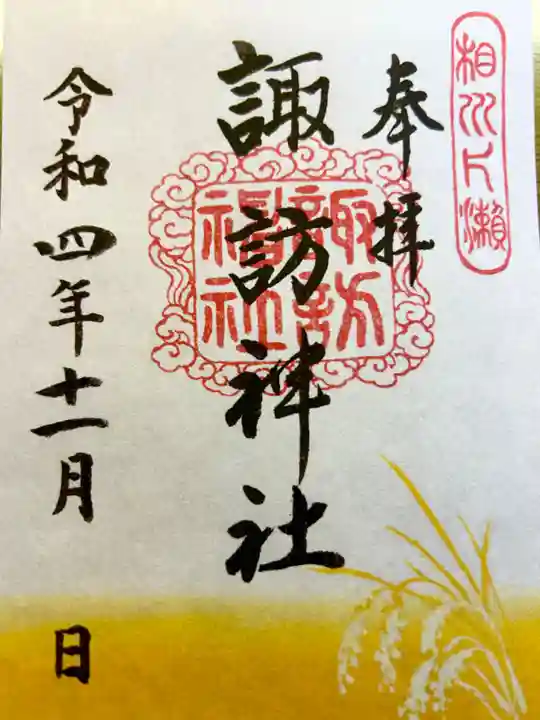 相州片瀬
奉拝
諏訪神社
諏訪神社
令和四年十一月 日